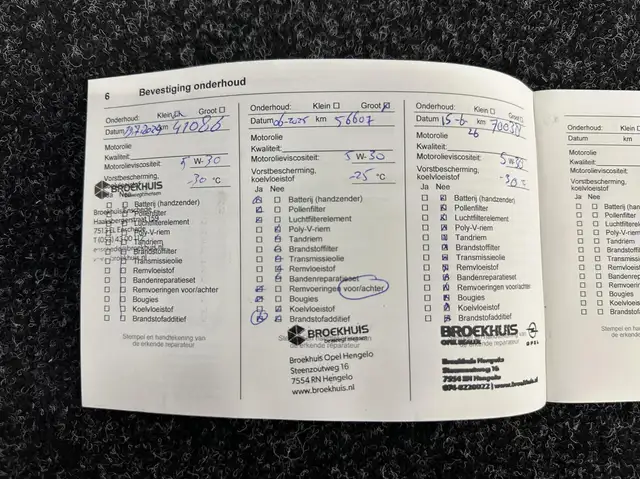 6 Bevestiging onderhoud
Onderhoud: Klein Groot
Datum km 41086
Motorolie
Kwaliteit:
Motorolieviscositeit: 5 W-30
Vorstbescherming, koelvloeistof -30 °C
BROEKHUIS
Batterij (handzender)
Pollenfilter
Luchtfilterelement
Poly-V-riem
Tandriem
Brandstoffilter
Transmissieolie
Remvloeistof
Bandenreparatieset
Remvoeringen voor/achter
Bougies
Koelvloeistof
Brandstofadditief
Stempel en handtekening van
de erkende reparateur
Onderhoud: Klein Groot
Datum 06-2025 km 56607
Motorolie
Kwaliteit:
Motorolieviscositeit: 5 W-30
Vorstbescherming,
koelvloeistof -25 °C
Ja Nee
Batterij (handzender)
Pollenfilter
Luchtfilterelement
Poly-V-riem
Tandriem
Brandstoffilter
Transmissieolie
Remvloeistof
Bandenreparatieset
Remvoeringen voor/achter
Bougies
Koelvloeistof
Brandstofadditief
BROEKHUIS
Broekhuis Opel Hengelo
Steenzoutweg 16
7554 RN Hengelo
www.broekhuis.nl
Onderhoud: Klein Groot
Datum 15-6 km
26
Motorolie
Kwaliteit:
Motorolieviscositeit: 5 W-30
Vorstbescherming,
koelvloeistof -30 °C
Ja Nee
Batterij (handzender)
Pollenfilter
Luchtfilterelement
Poly-V-riem
Tandriem
Brandstoffilter
Transmissieolie
Remvloeistof
Bandenreparatieset
Remvoeringen voor/achter
Bougies
Koelvloeistof
Brandstofadditief
BROEKHUIS
OPEL
de erkende reparateur
Broekhuis Hengelo
Steenzoutweg 16
7554 RN Hengelo
074-8220022 | www.broekhuis.nl
Onderhoud:
Datum
Motorolie
Kwaliteit:
Motorolieviscositeit:
Vorstbescherming,
koelvloeistof
Ja Nee